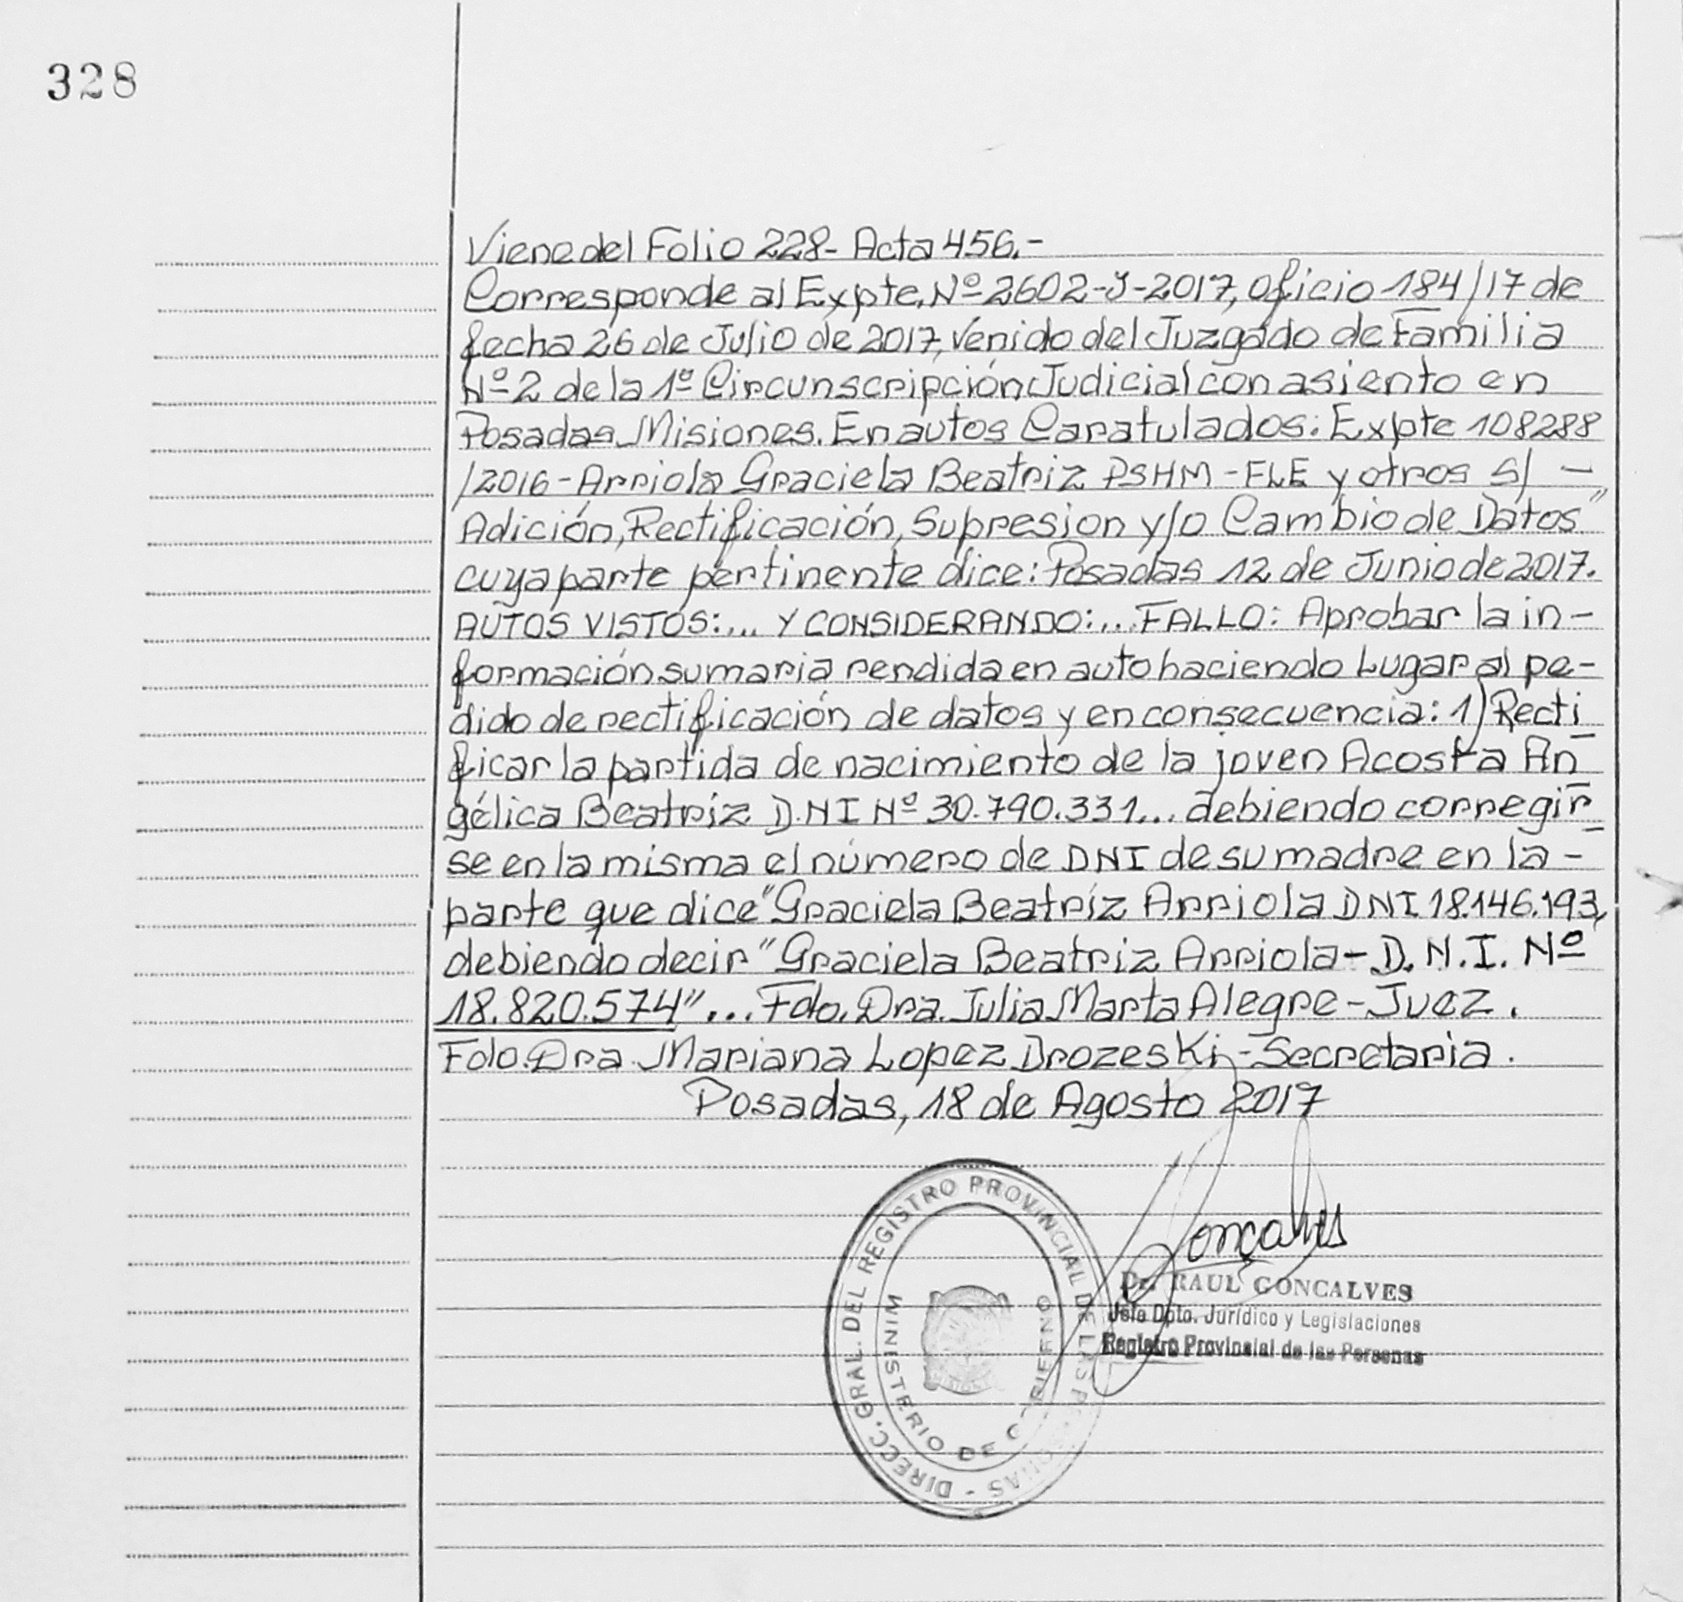 328
Viene del Folio 228- Acta 456.-
Corresponde al Expte. Nº 2602-J-2017, oficio 184/17 de
fecha 26 de Julio de 2017, venido del Juzgado de Familia
Nº 2 de la 1º Circunscripción Judicial con asiento en
Posadas Misiones. En autos Caratulados: Expte 108288
/2016-Arriola Graciela Beatriz PSHM-FLE y otros S/ -
Adición, Rectificación, Supresion y/o Cambio de Datos"
cuya parte pertinente dice: Posadas 12 de Junio de 2017.
AUTOS VISTOS:... Y CONSIDERANDO:... FALLO: Aprobar la in-
formación sumaria rendida en auto haciendo Lugar al pe-
dido de rectificación de datos y en consecuencia: 1) Recti
ficar la partida de nacimiento de la joven Acosta An
gélica Beatríz D.NI Nº 30.790.331... debiendo corregir
se en la misma el número de DNI de su madre en la -
parte que dice "Graciela Beatríz Arriola DNI 18.146.193,
debiendo decir "Graciela Beatriz Arriola- D.N.I. Nº
18.820.574"... Fdo. Dra. Julia Marta Alegre-Juez.
Fdo. Dra. Mariana Lopez Drozeski-Secretaria.
Posadas, 18 de Agosto 2017
DIRECC. GRAL. DEL REGISTRO PROVINCIAL DE LAS PERSONAS -
MINISTERIO DE GOBIERNO
Gonçalves
Dr. RAUL GONCALVES
Jefe Dpto. Jurídico y Legislaciones
Registro Provincial de las Personas